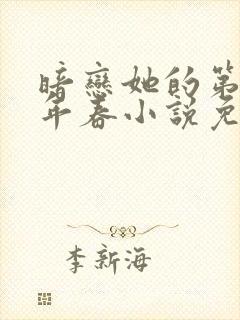 暗戀她的第
年春小說免
李新海